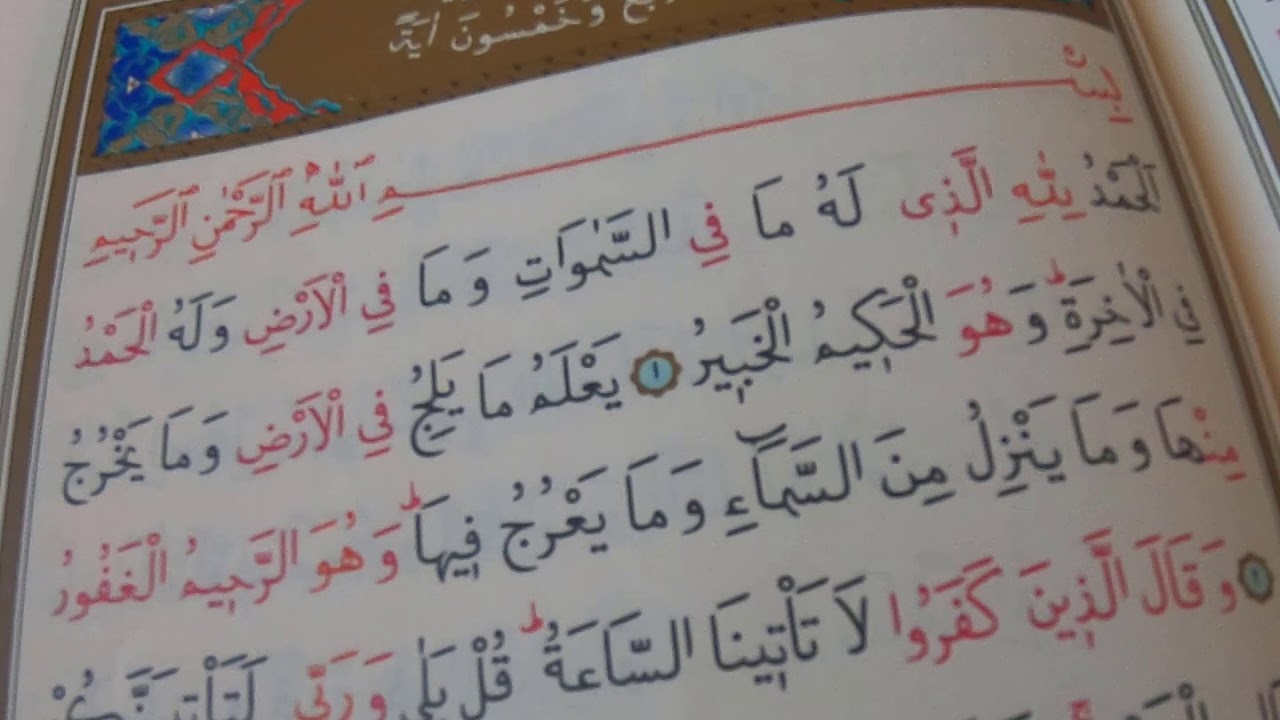 وَخَمْسُونَ اٰيَةً
بِسْمِ اللّٰهِ الرَّحْمٰنِ الرَّحِيمِ
اَلْحَمْدُ لِلّٰهِ الَّذِى لَهُ مَا فِي السَّمٰوَاتِ وَمَا فِي الْاَرْضِ وَلَهُ الْحَمْدُ
فِي الْاٰخِرَةِۜ وَهُوَ الْحَكِيمُ الْخَبِيرُ ١ يَعْلَمُ مَا يَلِجُ فِي الْاَرْضِ وَمَا يَخْرُجُ
مِنْهَا وَمَا يَنْزِلُ مِنَ السَّمَٓاءِ وَمَا يَعْرُجُ فِيهَاۜ وَهُوَ الرَّحِيمُ الْغَفُورُ
وَقَالَ الَّذِينَ كَفَرُوا لَا تَأْتِينَا السَّاعَةُۜ قُلْ بَلٰى وَرَبِّى